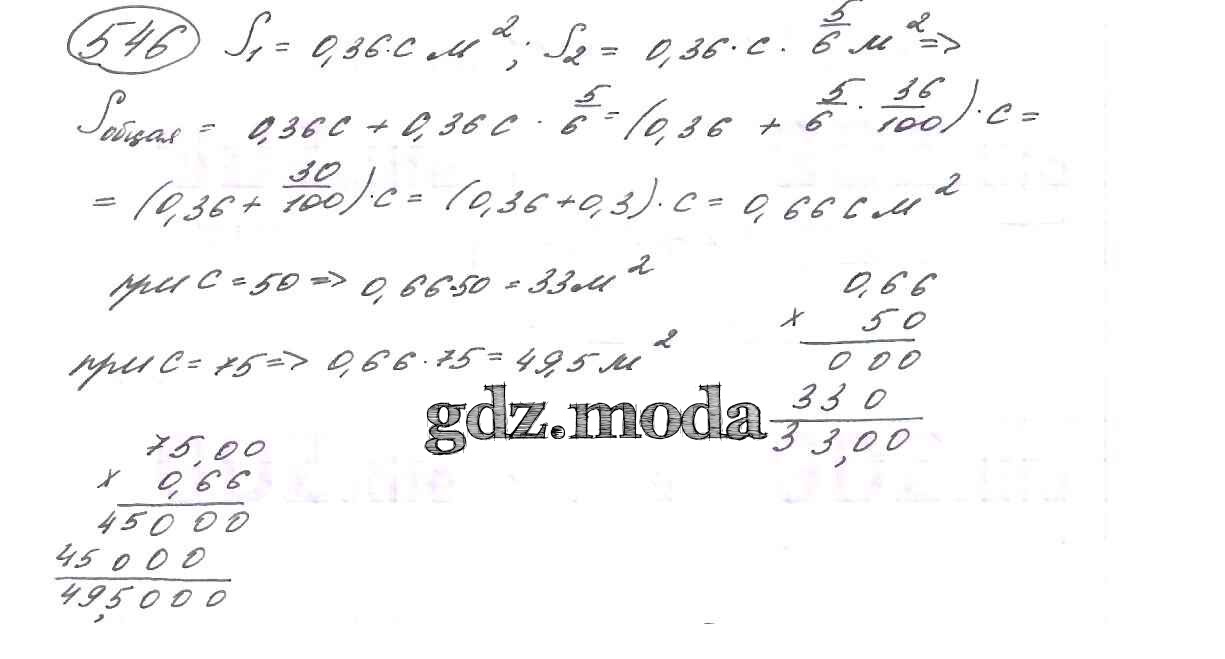 546 S₁ = 0,36·с м²; S₂ = 0,36·с·5/6 м² =>
Sобщая = 0,36с + 0,36с · 5/6 = (0,36 + 5/6 · 36/100)·с =
= (0,36 + 30/100)·с = (0,36+0,3)·с = 0,66с м²
при с = 50 => 0,66·50 = 33м²
при с = 75 => 0,66·75 = 49,5 м²
0,66
× 50
000
330
33,00
gdz.moda
75,00
× 0,66
45000
45000
49,5000